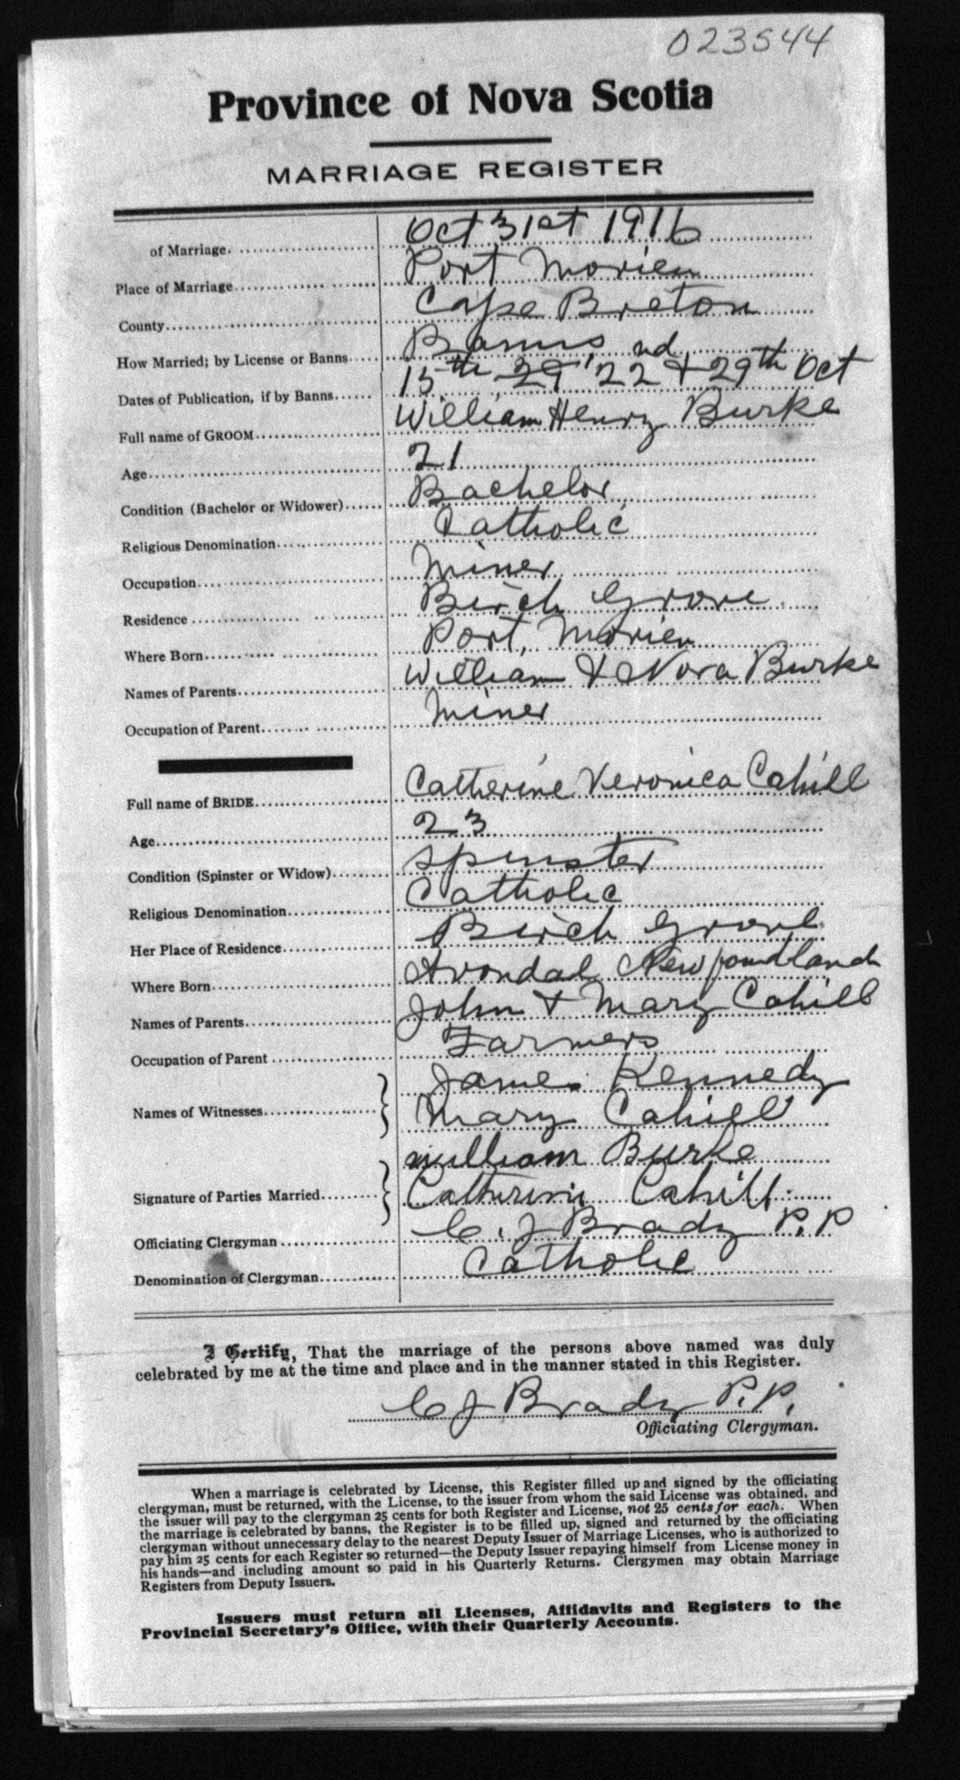 023544
Province of Nova Scotia
MARRIAGE REGISTER
of Marriage. Oct 31st 1916
Place of Marriage Port Morien
County Cape Breton
How Married; by License or Banns Banns
Dates of Publication, if by Banns 15th 29 22nd & 29th Oct
Full name of GROOM William Henry Burke
Age 21
Condition (Bachelor or Widower) Bachelor
Religious Denomination Catholic
Occupation Miner
Residence Birch Grove
Where Born Port Morien
Names of Parents William & Nora Burke
Occupation of Parent Miner
Full name of BRIDE Catherine Veronica Cahill
Age 23
Condition (Spinster or Widow) Spinster
Religious Denomination Catholic
Her Place of Residence Birch Grove
Where Born Avondal Newfoundland
Names of Parents John & Mary Cahill
Occupation of Parent Farmers
Names of Witnesses James Kennedy
Mary Cahill
Signature of Parties Married William Burke
Catherine Cahill
Officiating Clergyman C. J Brady P.P
Denomination of Clergyman Catholic
I Certify, That the marriage of the persons above named was duly
celebrated by me at the time and place and in the manner stated in this Register.
C J Brady P.P.
Officiating Clergyman.
When a marriage is celebrated by License, this Register filled up and signed by the officiating
clergyman, must be returned, with the License, to the issuer from whom the said License was obtained, and
the issuer will pay to the clergyman 25 cents for both Register and License, not 25 cents for each. When
the marriage is celebrated by banns, the Register is to be filled up, signed and returned by the officiating
clergyman without unnecessary delay to the nearest Deputy Issuer of Marriage Licenses, who is authorized to
pay him 25 cents for each Register so returned—the Deputy Issuer repaying himself from License money in
his hands—and including amount so paid in his Quarterly Returns. Clergymen may obtain Marriage
Registers from Deputy Issuers.
Issuers must return all Licenses, Affidavits and Registers to the
Provincial Secretary's Office, with their Quarterly Accounts.